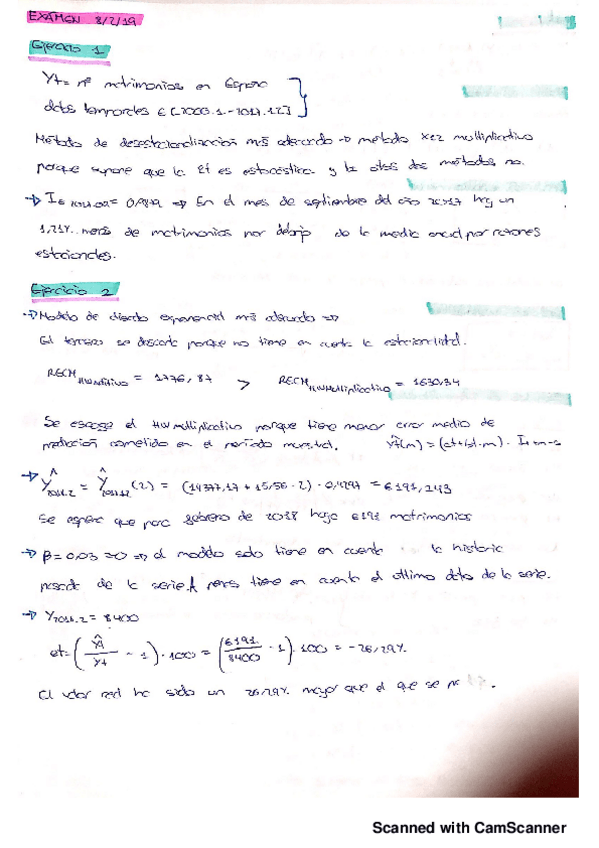 EXAMEN 8/2/19
Ejercicio 1
Yt = nº matrimonios en España
datos temporales ∈ [2003.1-2017.12]
Método de desestacionalización más adecuado → método X12 multiplicativo
porque supone que la Et es estocástica y los otros dos métodos no.
→ = 0,9879 ⇒ En el mes de septiembre del año 2017 hay un
1,21% menos de matrimonios por debajo de la media anual por razones
estacionales.
Ejercicio 2
→ Modelo de alisado exponencial más adecuado ⇒
El tercero se descarta porque no tiene en cuenta la estacionalidad.
RECM HWAditivo = 1776,87 > RECM HWMultiplicativo = 1630,34
Se escoge el HW multiplicativo porque tiene menor error medio de
predicción cometido en el período muestral. Ŷt(m) = (at+bt·m) ·
→ Ŷ2018.2 = Ŷ2017.12 (2) = (14377,17 + 15,56 · 2) · 0,4297 = 6191,243
Se espera que para febrero de 2018 haya 6191 matrimonios
→ β = 0,03 ≈ 0 ⇒ el modelo solo tiene en cuenta la historia
pasada de la serie. A penas tiene en cuenta el último dato de la serie.
→ Y2018.2 = 8400
et = (Ŷt/Yt - 1) · 100 = (6191/8400 - 1) · 100 = -26,29%
El valor real ha sido un 26,29% mayor que el que se
Scanned with CamScanner